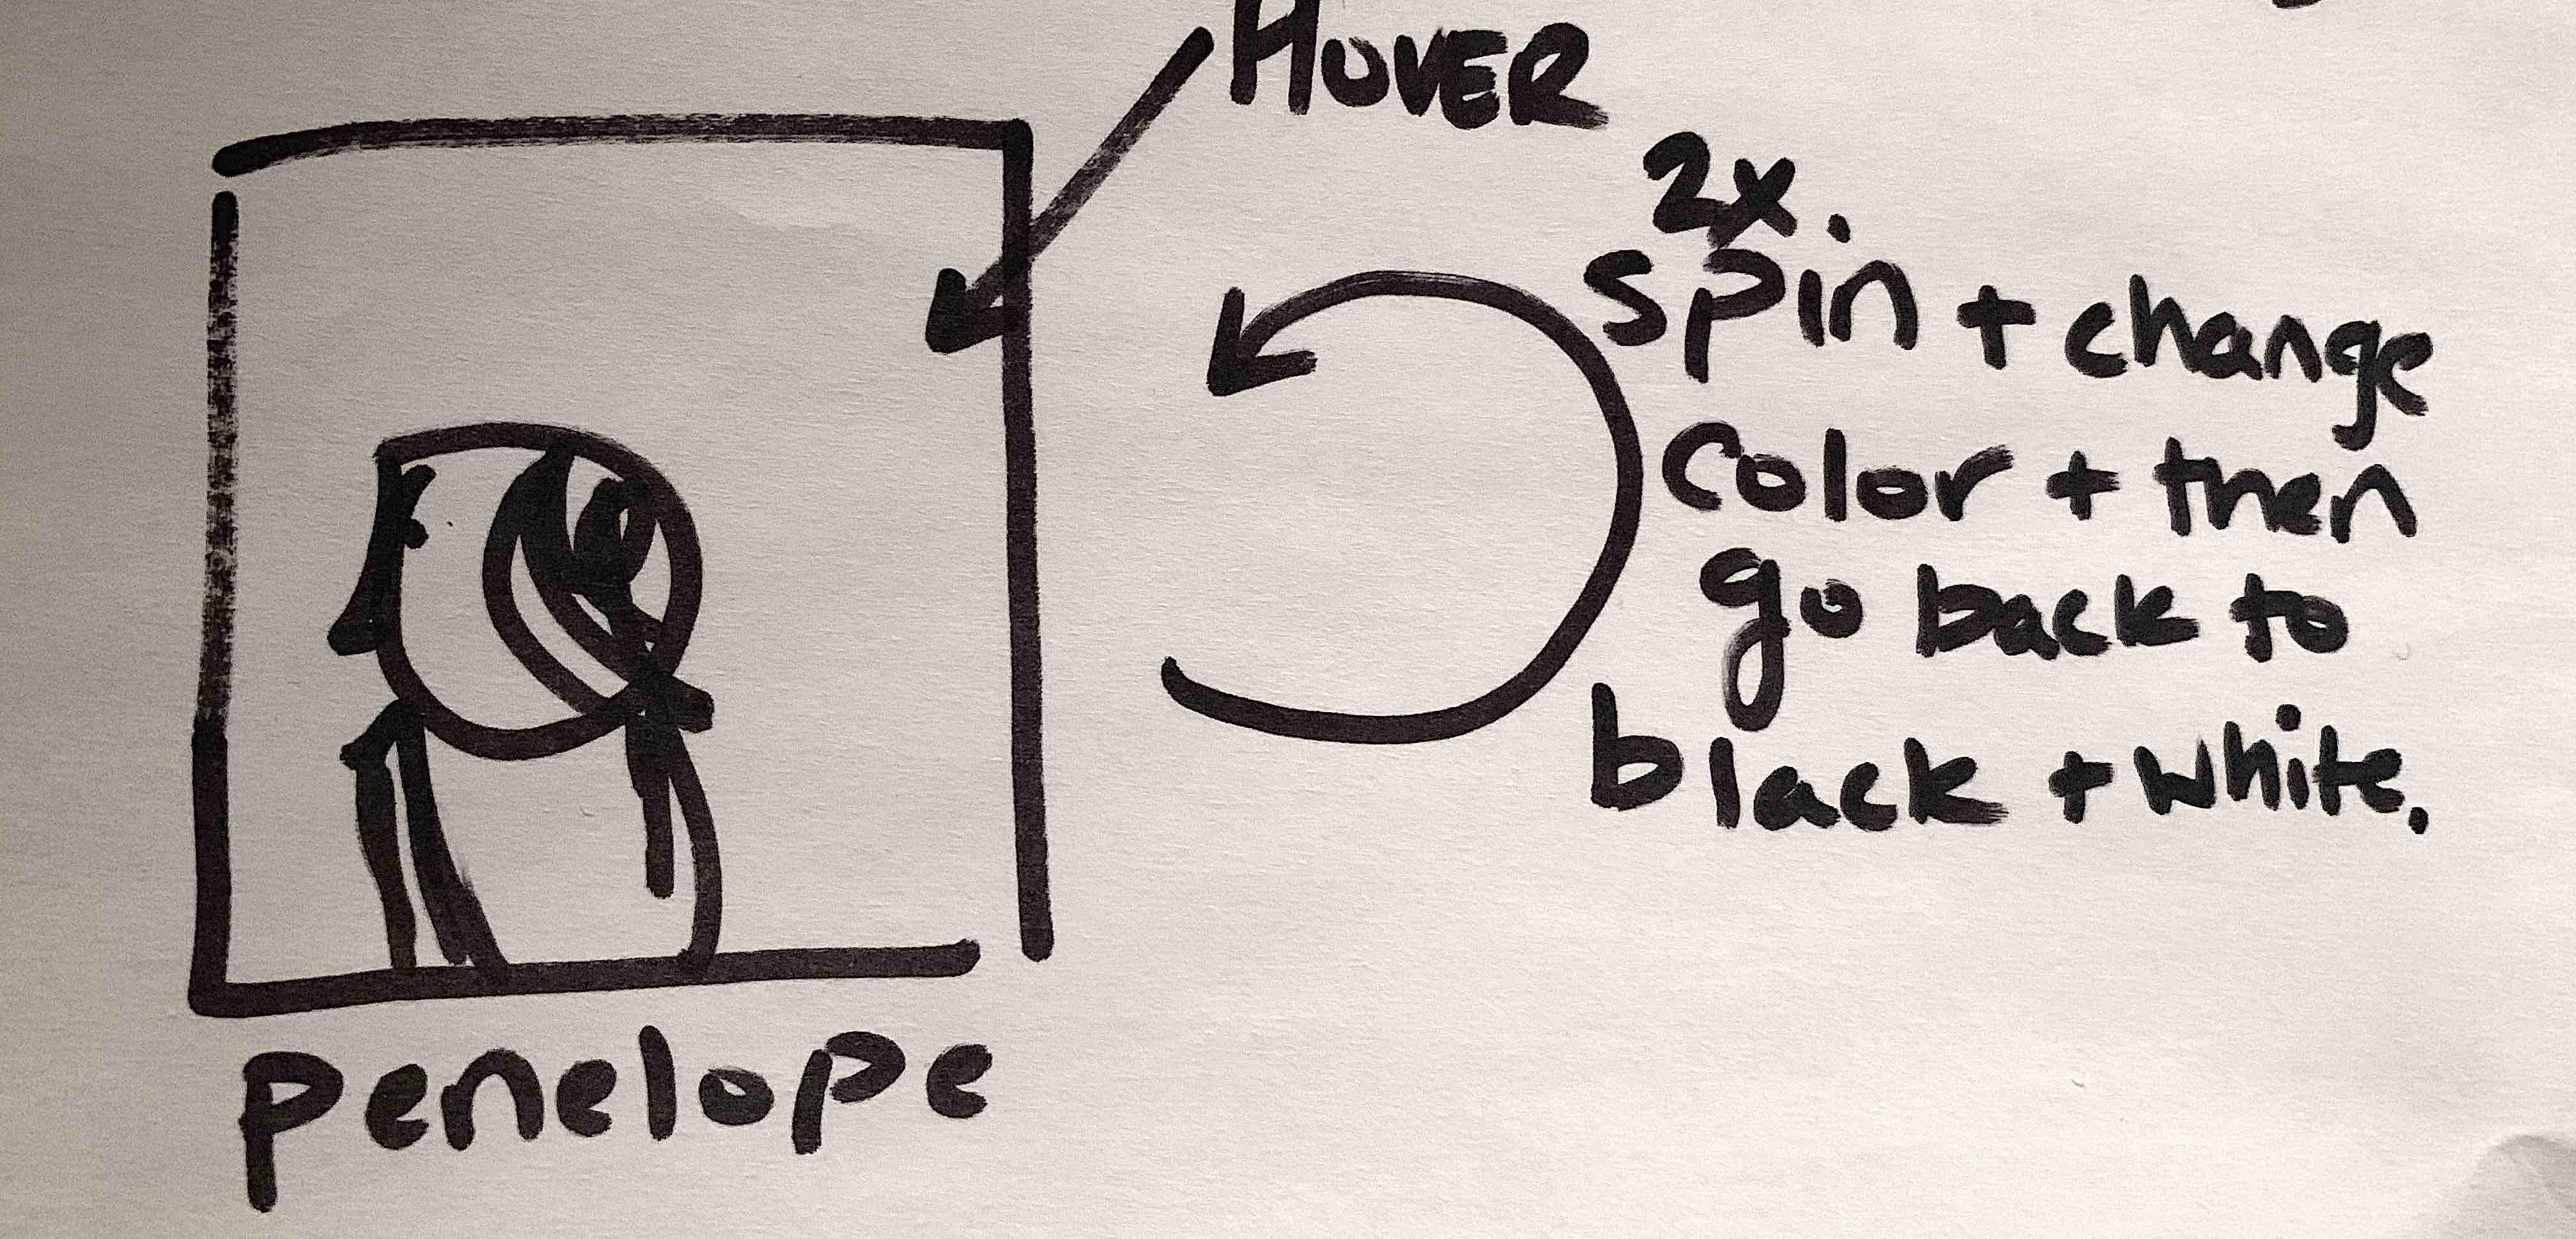 HOVER
2x.
spin + change
color + then
go back to
black + white.
penelope